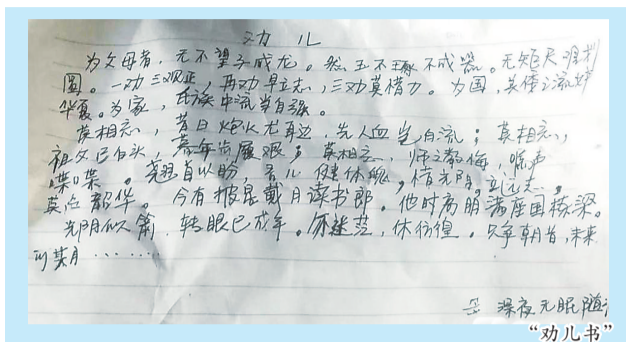 劝儿
为父母者，无不望子成龙。然玉不琢不成器。无矩尺难成
圆。一劝三观正，再劝早立志，三劝莫惜力。为国，英伟之流
华夏。为家，氏族中流当自强。
莫相忘，昔日炮火尤耳边，先人血岂白流；莫相忘，
祖父已白头，暮年尚履艰；莫相忘，师之教诲，
喋喋。翘首以盼，吾儿健体魄，惜光阴，立远志，
莫负韶华。今有披星戴月读书郎。他时高朋满座国栋梁。
光阴似箭，转眼已成年。勿迷茫，休彷徨。只争朝夕，未来
可期……
深夜无眠随
“劝儿书”